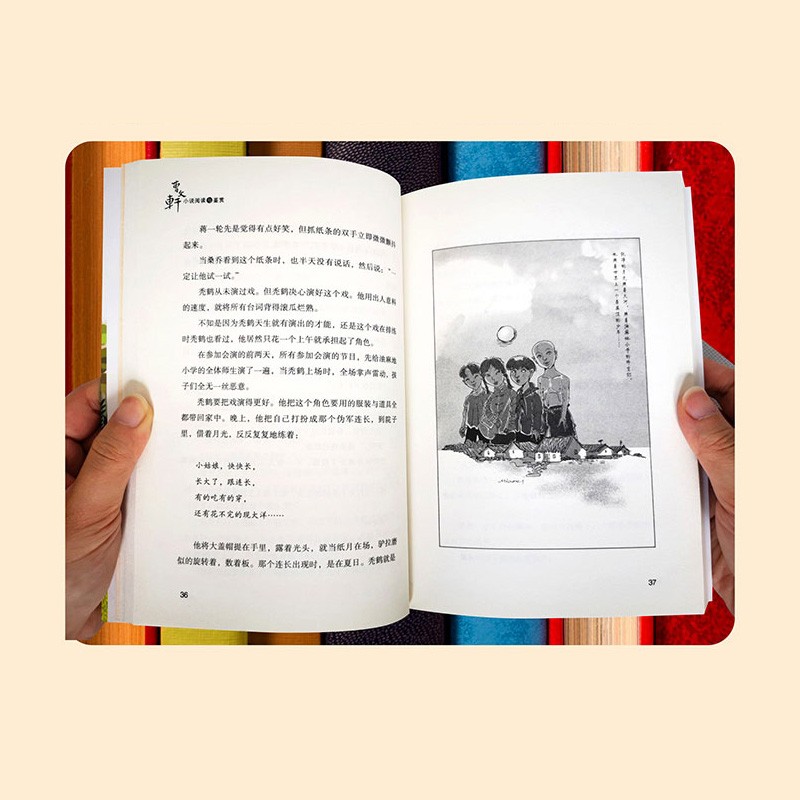 曹文軒
小说阅读与鉴赏
蒋一轮先是觉得有点好笑，但抓纸条的双手立即微微颤抖
起来。
当桑乔看到这个纸条时，也半天没有说话，然后说：“一
定让他试一试。”
秃鹤从未演过戏。但秃鹤决心演好这个戏。他用出人意料
的速度，就将所有台词背得滚瓜烂熟。
不知是因为秃鹤天生就有演出的才能，还是这个戏在排练
时秃鹤也看过，他居然只花一个上午就承担起了角色。
在参加会演的前两天，所有参加会演的节目，先给油麻地
小学的全体师生演了一遍，当秃鹤上场时，全场掌声雷动，孩
子们全无一丝恶意。
秃鹤要把戏演得更好。他把这个角色要用的服装与道具全
都带回家中。晚上，他把自己打扮成那个伪军连长，到院子
里，借着月光，反反复复地练着：
小姑娘，快快长，
长大了，跟连长，
有的吃有的穿，
还有花不完的现大洋……
他将大盖帽提在手里，露着光头，就当纸月在场，驴拉磨
似的旋转着，数着板。那个连长出现时，是在夏日。秃鹤就是
36
37